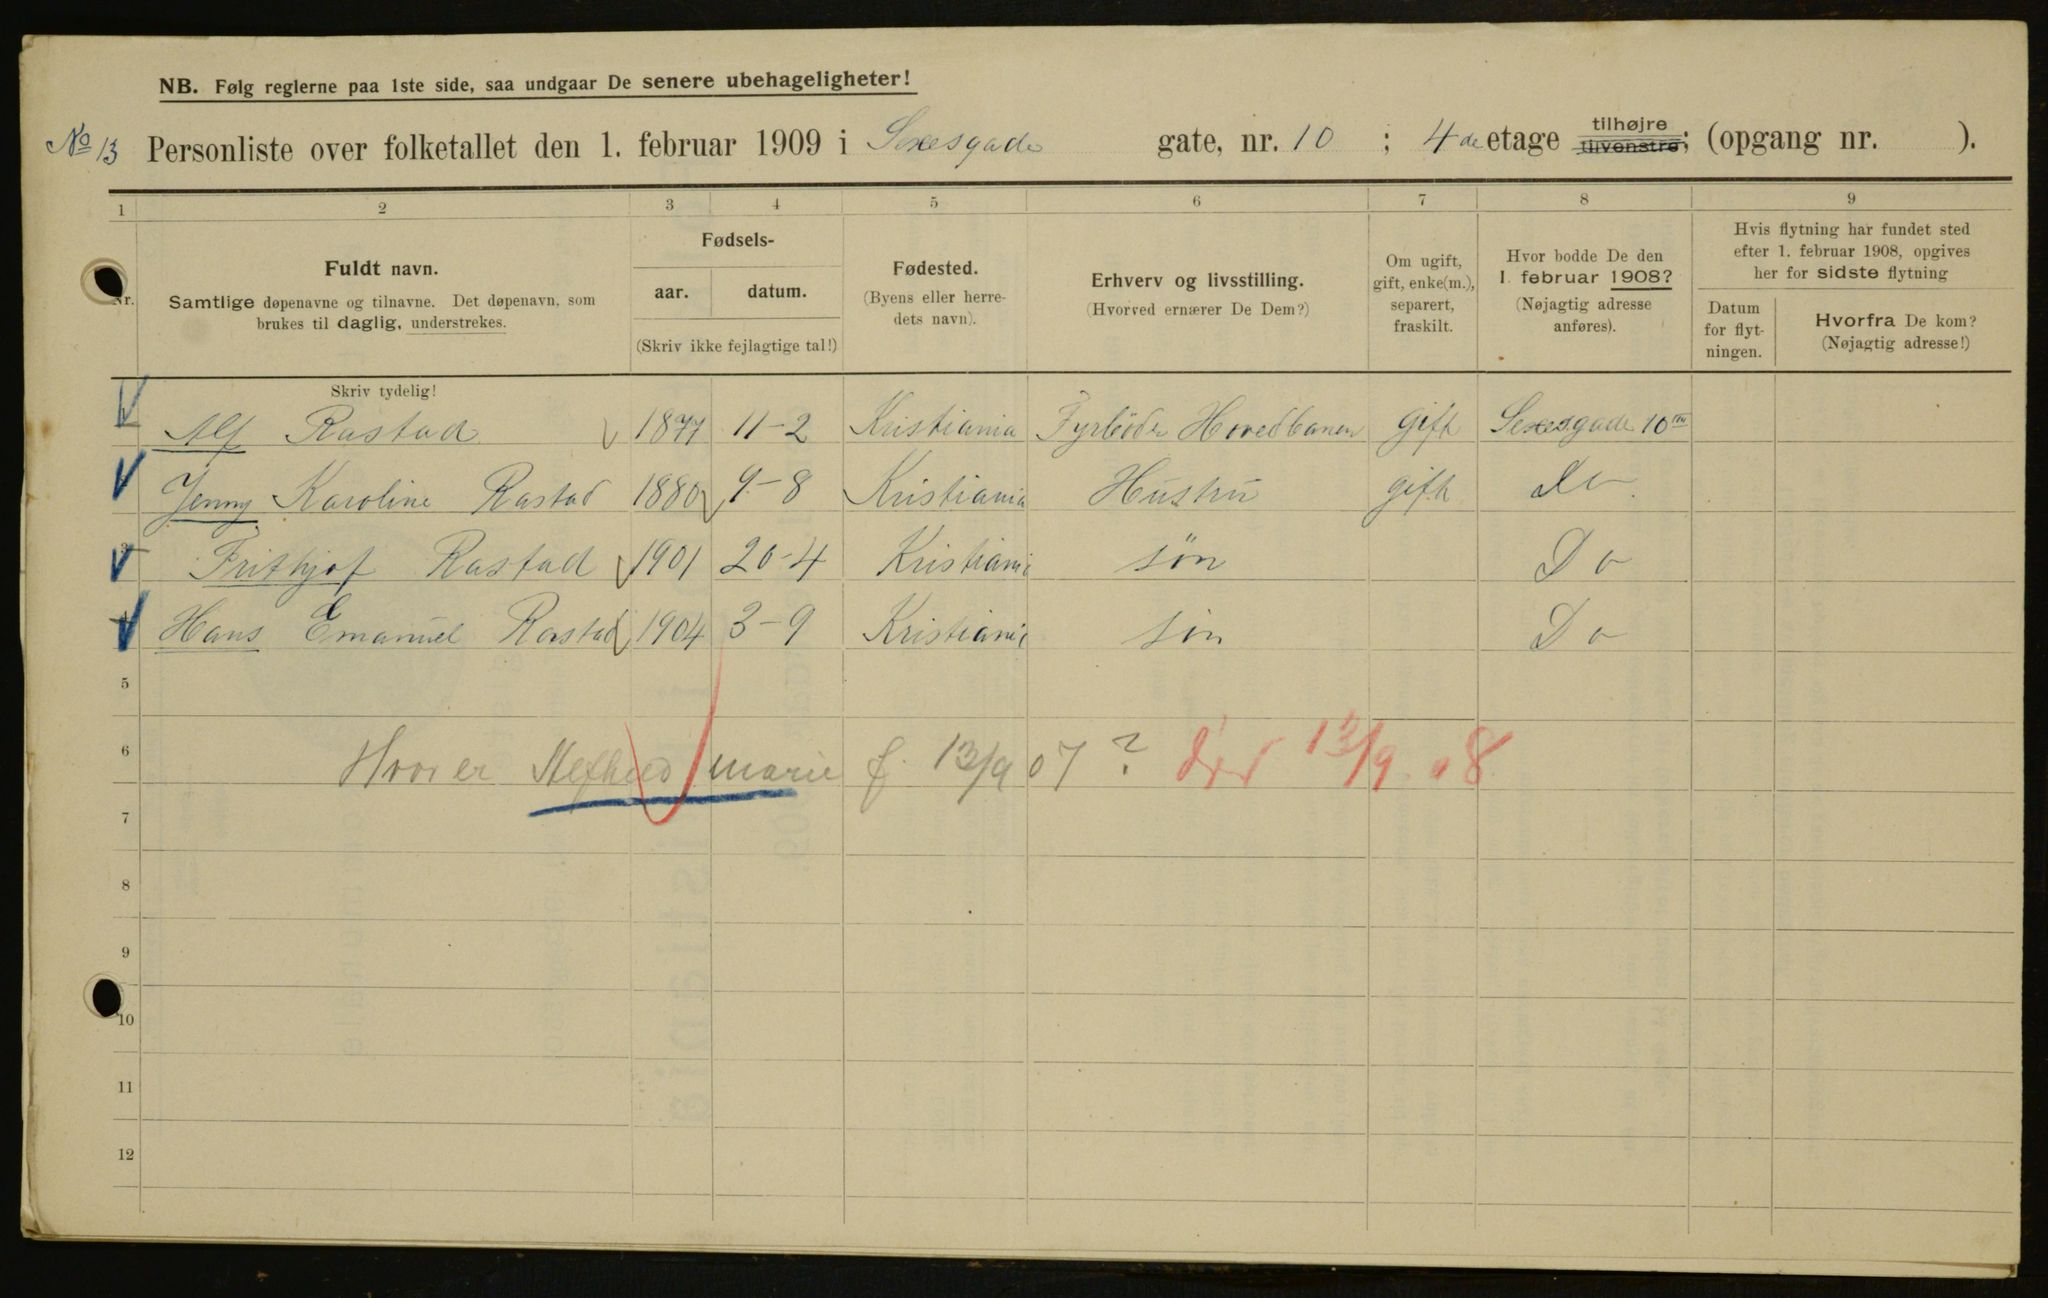 NB. Følg reglerne paa 1ste side, saa undgaar De senere ubehageligheter!
No 13 Personliste over folketallet den 1. februar 1909 i Sexesgade gate, nr. 10 ; 4de etage tilhøjre tilvenstre; (opgang nr. ).
1 2 3 4 5 6 7 8 9
Nr.
Fuldt navn.
Samtlige døpenavne og tilnavne. Det døpenavn, som
brukes til daglig, understrekes.
Fødsels-
aar. datum.
(Skriv ikke fejlagtige tal!)
Fødested.
(Byens eller herre-
dets navn).
Erhverv og livsstilling.
(Hvorved ernærer De Dem?)
Om ugift,
gift, enke(m.),
separert,
fraskilt.
Hvor bodde De den
1. februar 1908?
(Nøjagtig adresse
anføres).
Hvis flytning har fundet sted
efter 1. februar 1908, opgives
her for sidste flytning
Datum
for flyt-
ningen.
Hvorfra De kom?
(Nøjagtig adresse!)
Skriv tydelig!
Alf Rastad 1877 11-2 Kristiania Fyrbøder Hovedbanen gift Sexesgade 10
Jenny Karoline Rastad 1880 9-8 Kristiania Hustru gift Do
3 Frithjof Rastad 1901 20-4 Kristiania søn Do
4 Hans Emanuel Rastad 1904 3-9 Kristiania søn Do
5
6 Hvor er marie f. 13/9 07? død 13/9 08
7
8
9
10
11
12